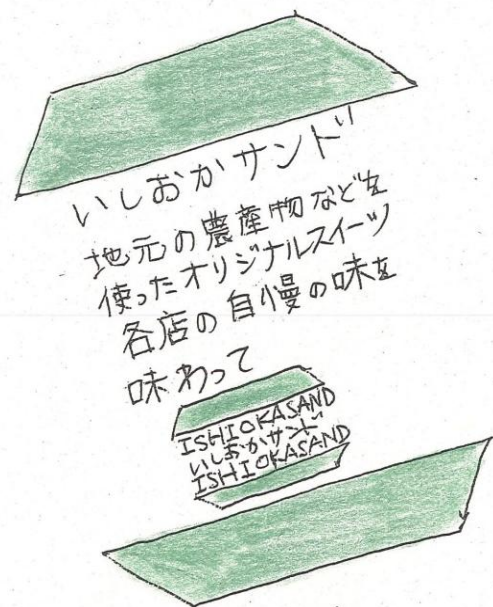 いしおかサンド
地元の農産物などを
使ったオリジナルスイーツ
各店の自慢の味を
味わって
ISHIOKASAND
いしおかサンド
ISHIOKASAND